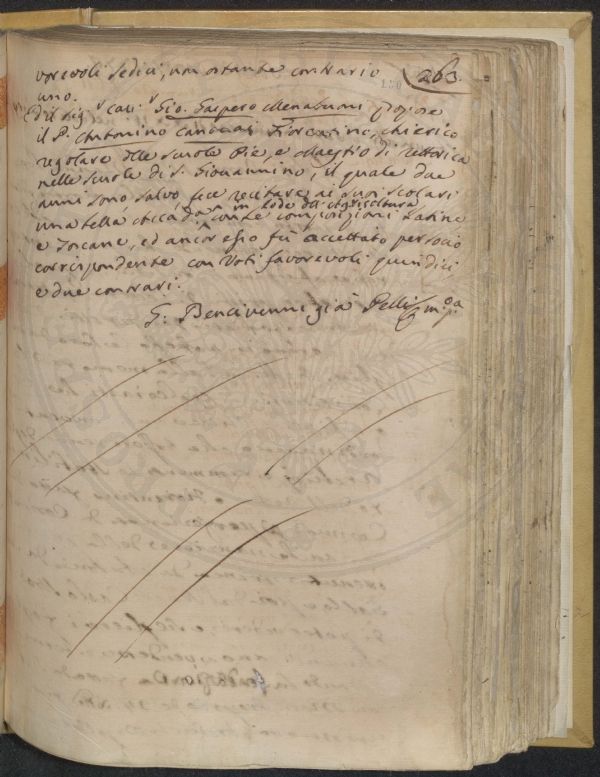 263.
vorevoli sedici, non ostante contrario
uno.
Ed il Sig.r Cav.r Gio. Gaspero Menabuoni propose
il P. Antonino Canovai Fiorentino, chierico
regolare delle Scuole Pie, e Maestro di rettorica
nelle Scuole di S. Giovannino, il quale due
anni sono salvo fece recitare ai suoi scolari
in lode dell'Agricoltura
una bella con le composizioni Latine
e Toscane, ed ancor esso fù accettato per socio
corrispondente con Voti favorevoli quindici
e due contrari.
G. Bencivenni già Pelli m.o p.a